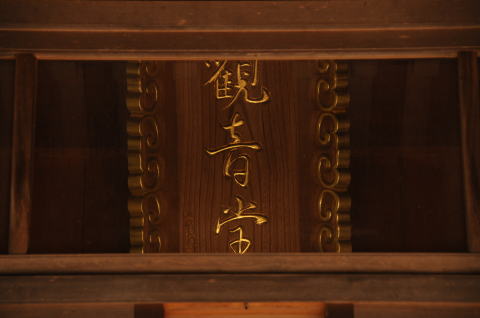 觀音堂